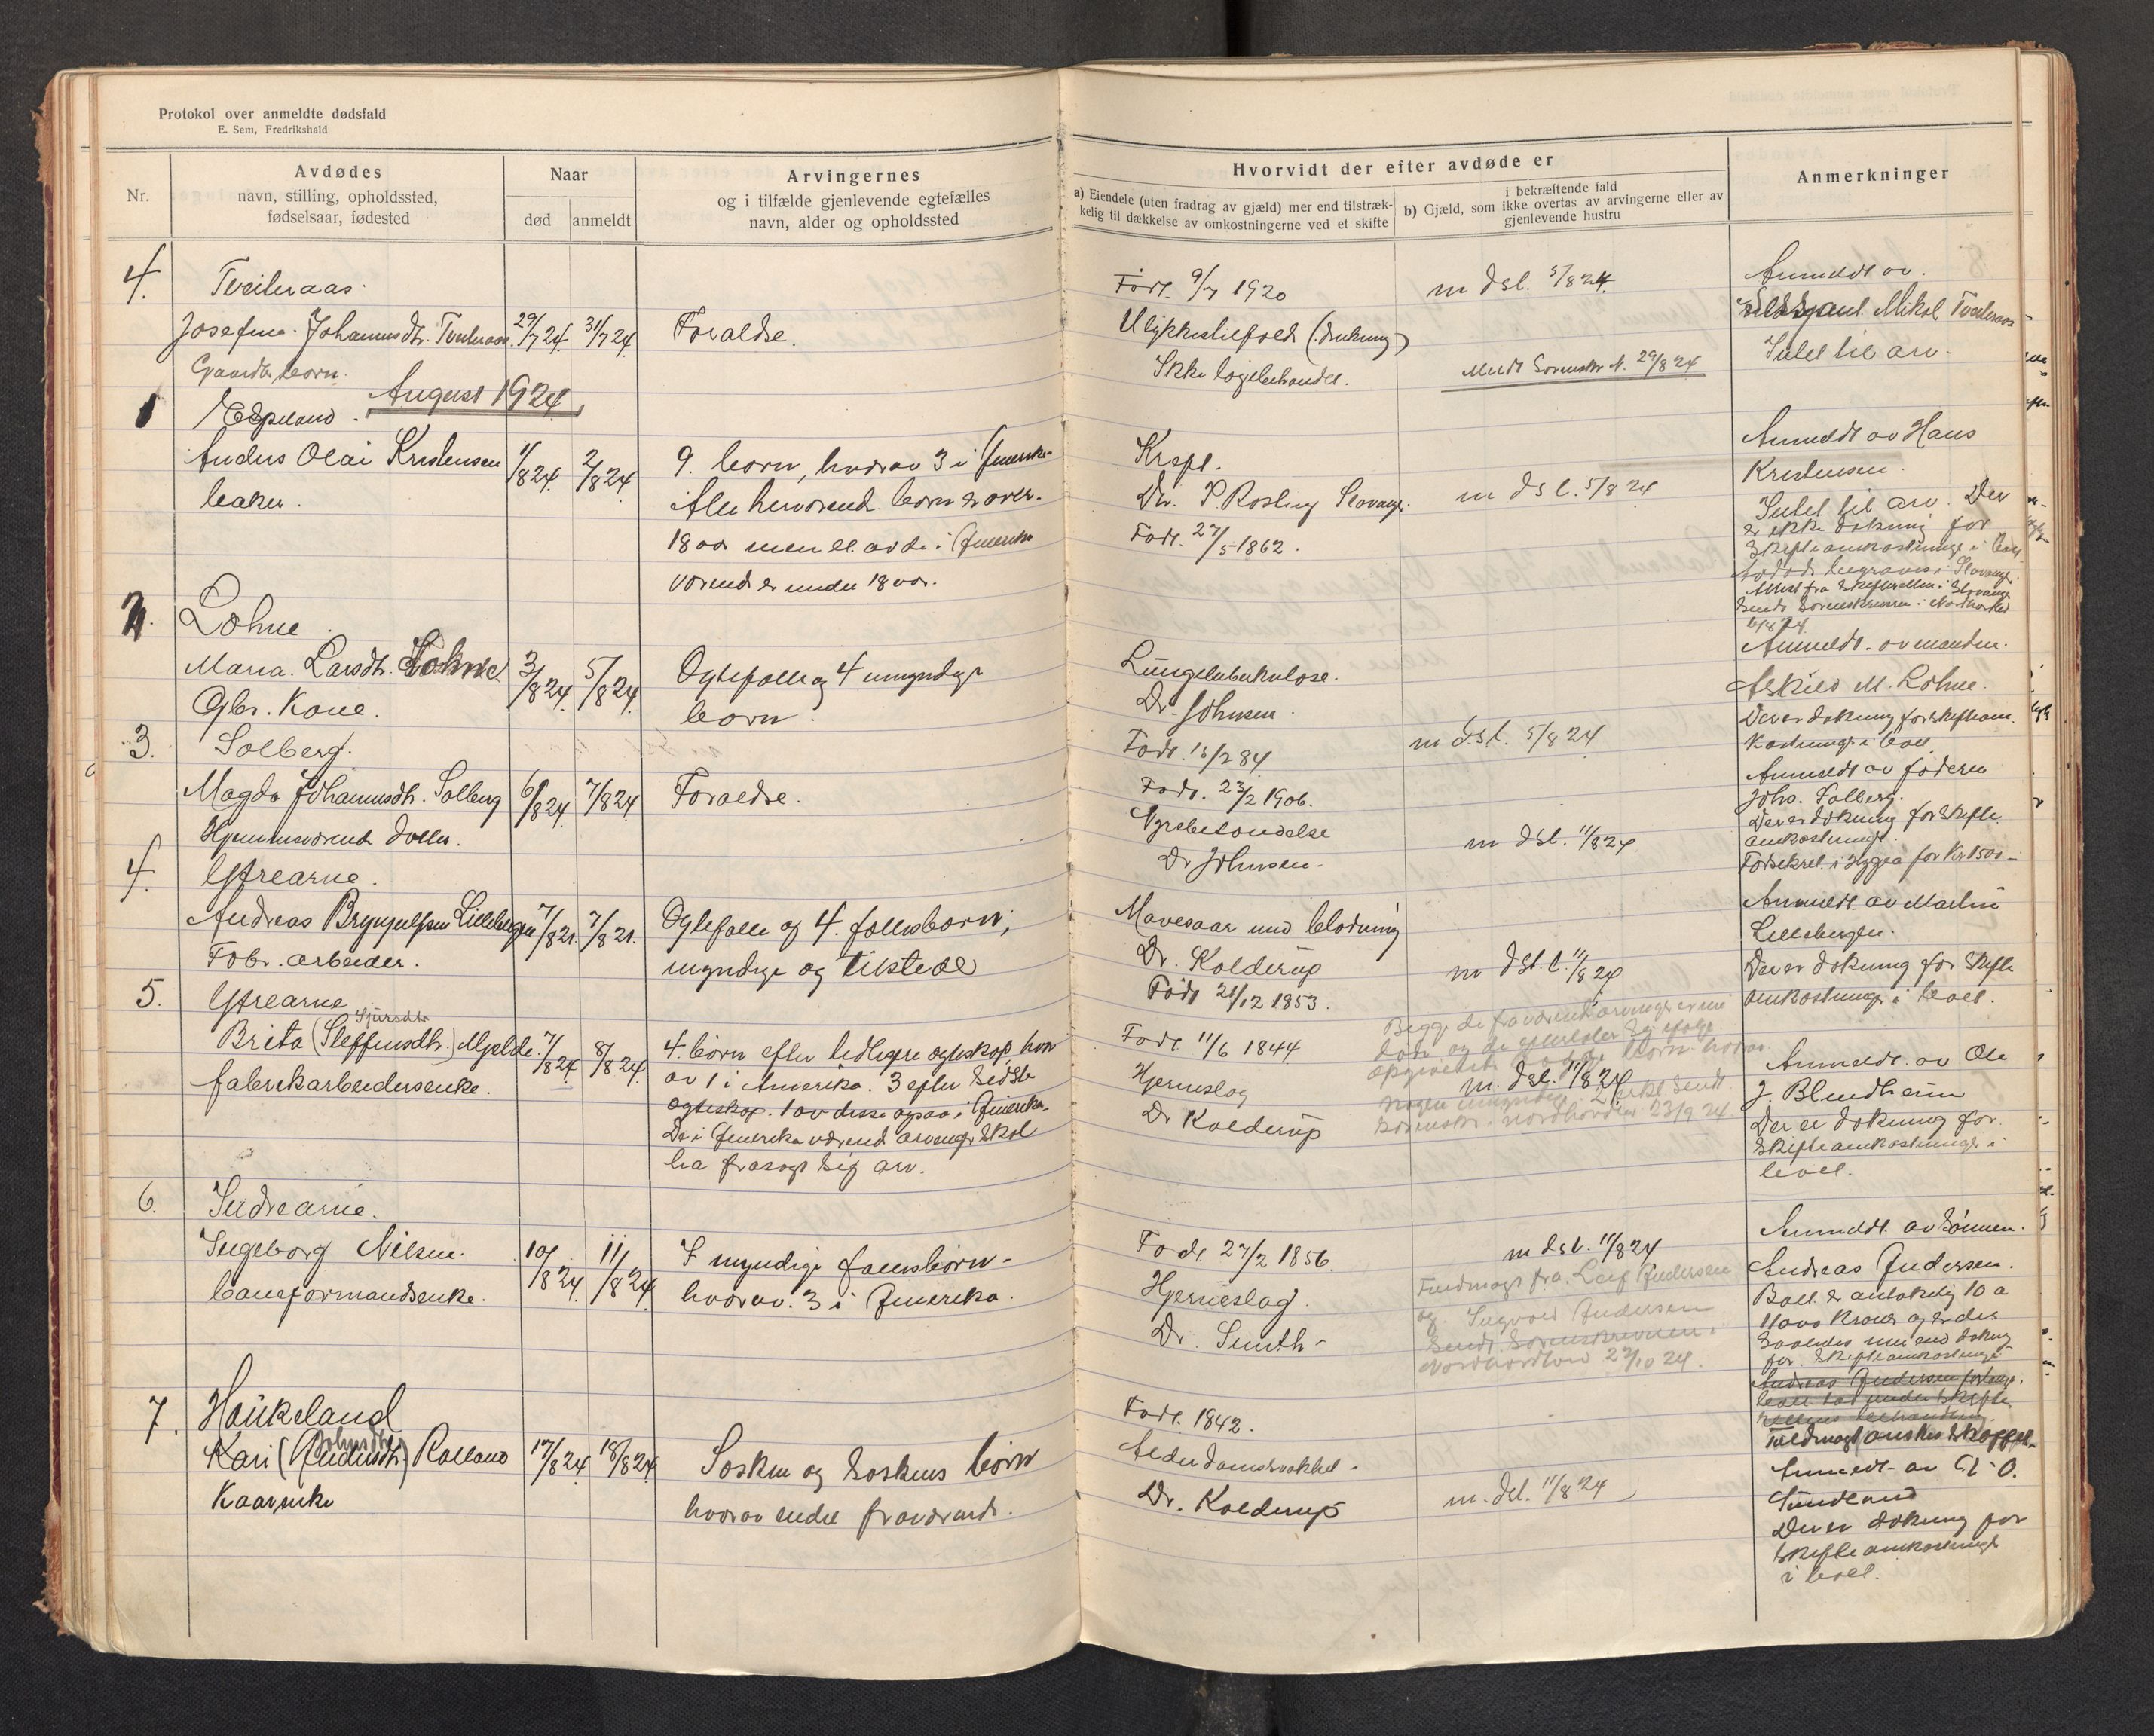 Protokol over anmeldte dødsfald
E. Sem, Fredrikshald
Nr.
Avdødes
navn, stilling, opholdssted,
fødselsaar, fødested
Naar
død
anmeldt
Arvingernes
og i tilfælde gjenlevende egtefælles
navn, alder og opholdssted
Hvorvidt der efter avdøde er
a) Eiendele (uten fradrag av gjæld) mer end tilstræk-
kelig til dækkelse av omkostningerne ved et skifte
i bekræftende fald
b) Gjæld, som ikke overtas av arvingerne eller av
gjenlevende hustru
Anmerkninger
4.
Tveiteraas.
Josefine Johannesdtr. Tveiteraas
29/7 24. 31/7 24.
Foræld­re.
Gaardbr. barn.
Født 9/7 1920
Ulykkestilfælde (drukning)
Ikke lægebehandlet.
m dsl. 5/8 24
Meldt Sorenskr. N. 29/8 24
Anmeldt av
Mikal Tveiteraas
Intet til arv.
August 1924
1
Espeland.
Anders Olai Kristensen
baker.
1/8 24. 2/8 24
9. børn, hvorav 3 i Amerika
Alle herværende børn er over
18 aar men et av de i Amerika
værende er under 18 aar.
Kræft.
Dr. P. Stavanger.
Født 27/5-1862.
m dsl. 5/8 24
Anmeldt av Hans
Kristensen.
Intet til arv. Der
er ikke dækning for
skifteomkostninger i boet
Avdøde begraves i Stavanger.
Attest fra skifteretten i Stavanger
sendt Sorenskriveren i Nordhordl.
2.
Lohne
Maria Larsdtr. Lohne
Gbr. Kone.
3/8 24. 5/8 24.
Egtefælle og 4 umyndige
børn.
Lungetuberkulose.
Dr. Johnsen.
Født 15/2 84
m dsl. 5/8 24
Anmeldt av manden.
Askild M. Lohne.
Der er dækning for skifteom-
kostninger i boet.
3.
Solberg.
Magda Johannesdtr. Solberg
Hjemmeværende datter.
6/8 24. 7/8 24.
Forældre.
Født 23/2 1906.
Nyrebetændelse
Dr Johnsen.
m dsl. 11/8 24
Anmeldt av faderen
Johs. Solberg.
Der er dækning for skifte
omkostninger.
Forsikret i Hygea for Kr 1500-
4.
Ytrearne.
Andreas Brynjulfsen Lillebergen
Fabr. arbeider.
7/8 21. 7/8 21.
Egtefælle og 4. fællesbørn;
myndige og tilstede
Mavesaar med blødning
Dr. Kolderup
Født 21/12 1853.
m dsl. 11/8 24
Anmeldt av Martin
Lillebergen.
Der er dækning for skifte
omkostninger i boet.
5.
Ytrearne
Sjursdtr
Brita (Steffensdtr.) Mjelde.
fabrikarbeidersenke.
7/8 24. 8/8 24.
4. børn efter tidligere egteskap, hvor
av 1 i Amerika. 3 efter sidste
egteskap. 1 av disse ogsaa i Amerika.
De i Amerika værende arvinger skal
ha frasagt sig arv.
Født 11/6 1844
Hjerneslag
Dr Kolderup
Begge de fraværende arvinger er nu
døde og de efterlater sig ifølge
m. dsl. 11/8 24
sorenskr. i Nordhordland 23/9 24
Anmeldt av Ole
J. Blindheim
Der er dækning for
skifteomkostninger i
boet.
6.
Indrearne.
Ingeborg Nilsen.
baneformandsenke.
10/8 24. 11/8 24.
7 myndige fællesbørn
hvorav. 3 i Amerika.
Født 27/2 1856.
Hjerneslag.
Dr. Smith
m dsl. 11/8 24
Fuldmagt fra Leif Andersen
og Ingvald Andersen
sendt Sorenskriveren i
Nordhordland 22/10 24.
Anmeldt av sønnen.
Andreas Andersen.
Boet er antakelig 10 a
11000 kroner og er der
saaledes mer end dækning
for skifteomkostninger
Andreas Andersen forlanger
boet tat under skifte
rettens behandling.
7.
Haukeland
Johnsdtr
Kari (Andersdtr.) Rolland
Kaarenke
17/8 24. 18/8 24.
Søsken og søskens børn
hvorav endel fraværende.
Født 1842.
Alderdomssvakhet.
Dr. Kolderup
m. dsl. 11/8 24
Anmeldt av O.
Sundland
Der er dækning for
skifteomkostninger
i boet.